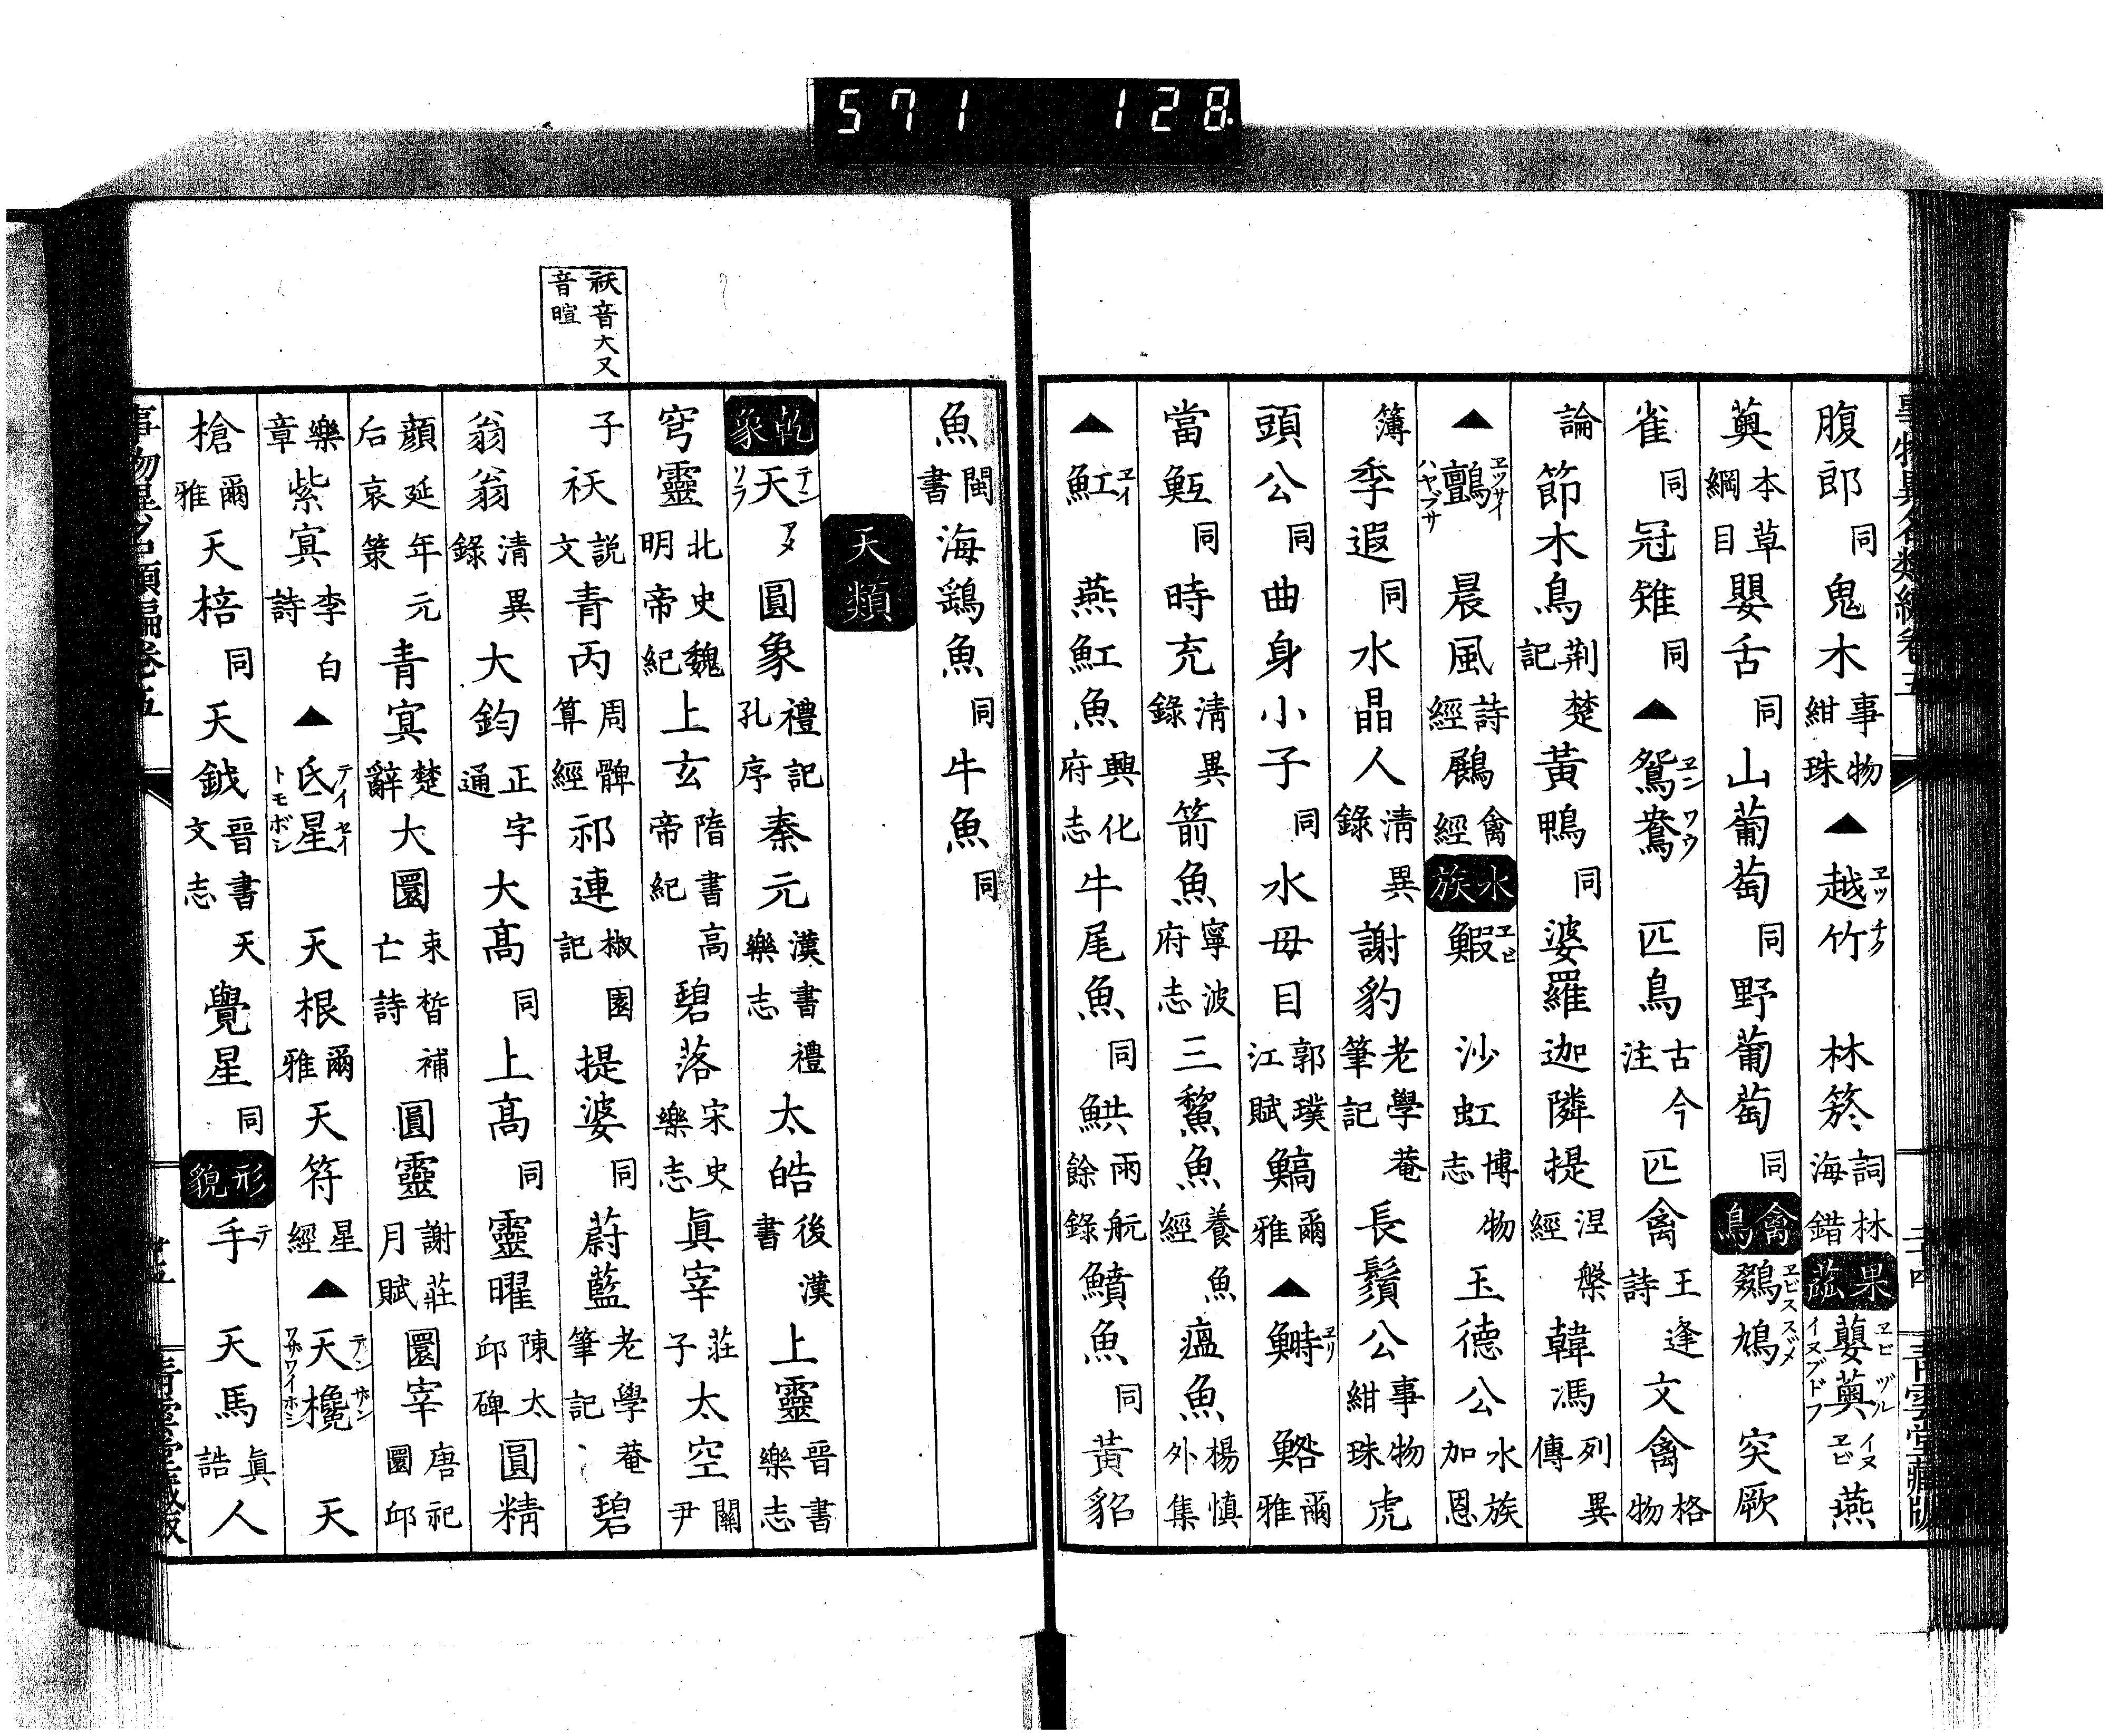 571 128
事物異名類編卷五 二十四 青雲堂藏版
腹郎同鬼木事物紺珠▲越竹ヱッチク 林䇞詞林海錯 果蓏 蘡薁ヱビヅル イヌヱビ イヌブドフ 燕
薁本草綱目嬰舌同山葡萄同野葡萄同 禽鳥 鷚鳩ヱビススヾメ 突厥
雀同冠雉同▲鴛鴦ヱンワウ 匹鳥古今注匹禽王逢詩文禽格物
論節木鳥荊楚記黃鴨同婆羅迦隣提涅槃經韓馮列異傳
▲鸇ヱッサイ ハヤブサ 晨風詩經鷐禽經 水族 鰕ヱビ 沙虹博物志玉德公水族加恩
簿季遐同水晶人清異錄謝豹老學菴筆記長鬚公事物紺珠虎
頭公同曲身小子同水母目郭璞江賦鰝爾雅▲鰣ヱリ 鯦爾雅
當魱同時充清異錄箭魚寧波府志三鰲魚養魚經瘟魚楊慎外集
▲魟ヱイ 燕魟魚興化府志牛尾魚同䱋雨航餘錄鱝魚同黃貂
魚閩書海鷂魚同牛魚同
天類
乾象 天テン アメ ソラ 圓象禮記孔序秦元漢書禮樂志太皓後漢書上靈晉書樂志
穹靈北史魏明帝紀上玄隋書高帝紀碧落宋史樂志眞宰莊子太空關尹
子祆説文青丙周髀算經祁連椒園記提婆同蔚藍老學菴筆記碧
祆音大又音暄
翁翁清異錄大鈞正字通大高同上高同靈曜陳太邱碑圓精
顏延年元后哀策青冥楚辭大圜束晳補亡詩圓靈謝莊月賦圜宰唐祀圜邱
樂章紫冥李白詩▲氐星テイセイ トモボシ 天根爾雅天符星經▲天欃テンサン ワザワイホシ 天
槍爾雅天棓同天鉞晉書天文志覺星同 形貌 手テ 天馬眞誥人
事物異名類編卷五 廿五 青雲堂藏版